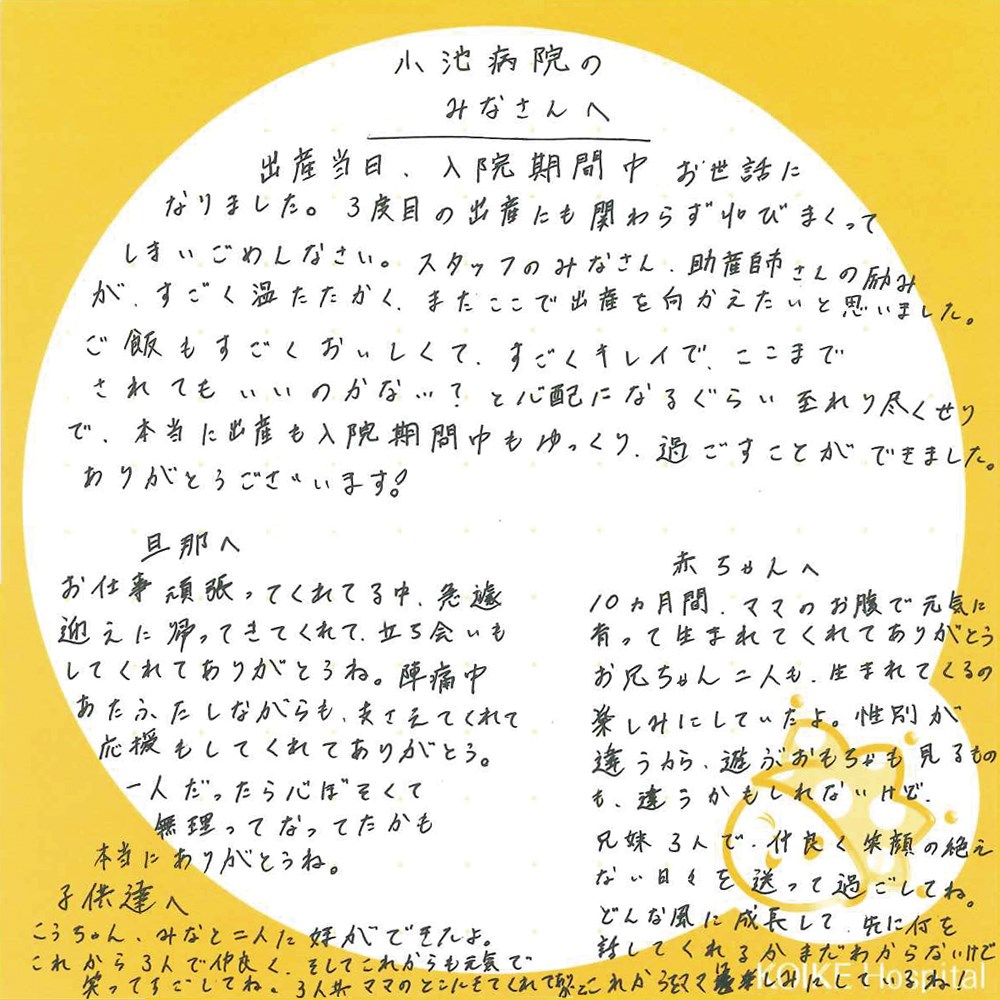 小池病院の
みなさんへ
出産当日、入院期間中 お世話に
なりました。3度目の出産にも関わらず叫びまくって
しまいごめんなさい。スタッフのみなさん、助産師さんの励み
が、すごく温たたかく、またここで出産を向かえたいと思いました。
ご飯もすごくおいしくて、すごくキレイで、ここまで
されてもいいのかな…？と心配になるぐらい 至れり尽くせり
で、本当に出産も入院期間中もゆっくり、過ごすことができました。
ありがとうございます！
旦那へ
お仕事 頑張ってくれてる中、急遽
迎えに帰ってきてくれて、立ち会いも
してくれてありがとうね。陣痛中
あたふたしながらも、支さえてくれて
応援もしてくれてありがとう。
一人だったら心ぼそくて
無理ってなってたかも
本当にありがとうね。
子供達へ
こうちゃん、みなと二人に妹ができたよ。
これから3人で仲良く、そしてこれからも元気で
笑ってすごしてね。3人共ママのとこにきてくれて
赤ちゃんへ
10カ月間、ママのお腹で元気に
育って生まれてくれてありがとう
お兄ちゃん二人も、生まれてくるの
楽しみにしていたよ。性別が
違うから、遊ぶおもちゃも見るもの
も、違うかもしれないけど、
兄妹3人で、仲良く笑顔の絶え
ない日々を送って過ごしてね。
どんな風に成長して、先に何を
話してくれるかまだわからないけど
これからをママ楽しみにしているね！
KOIKE Hospital